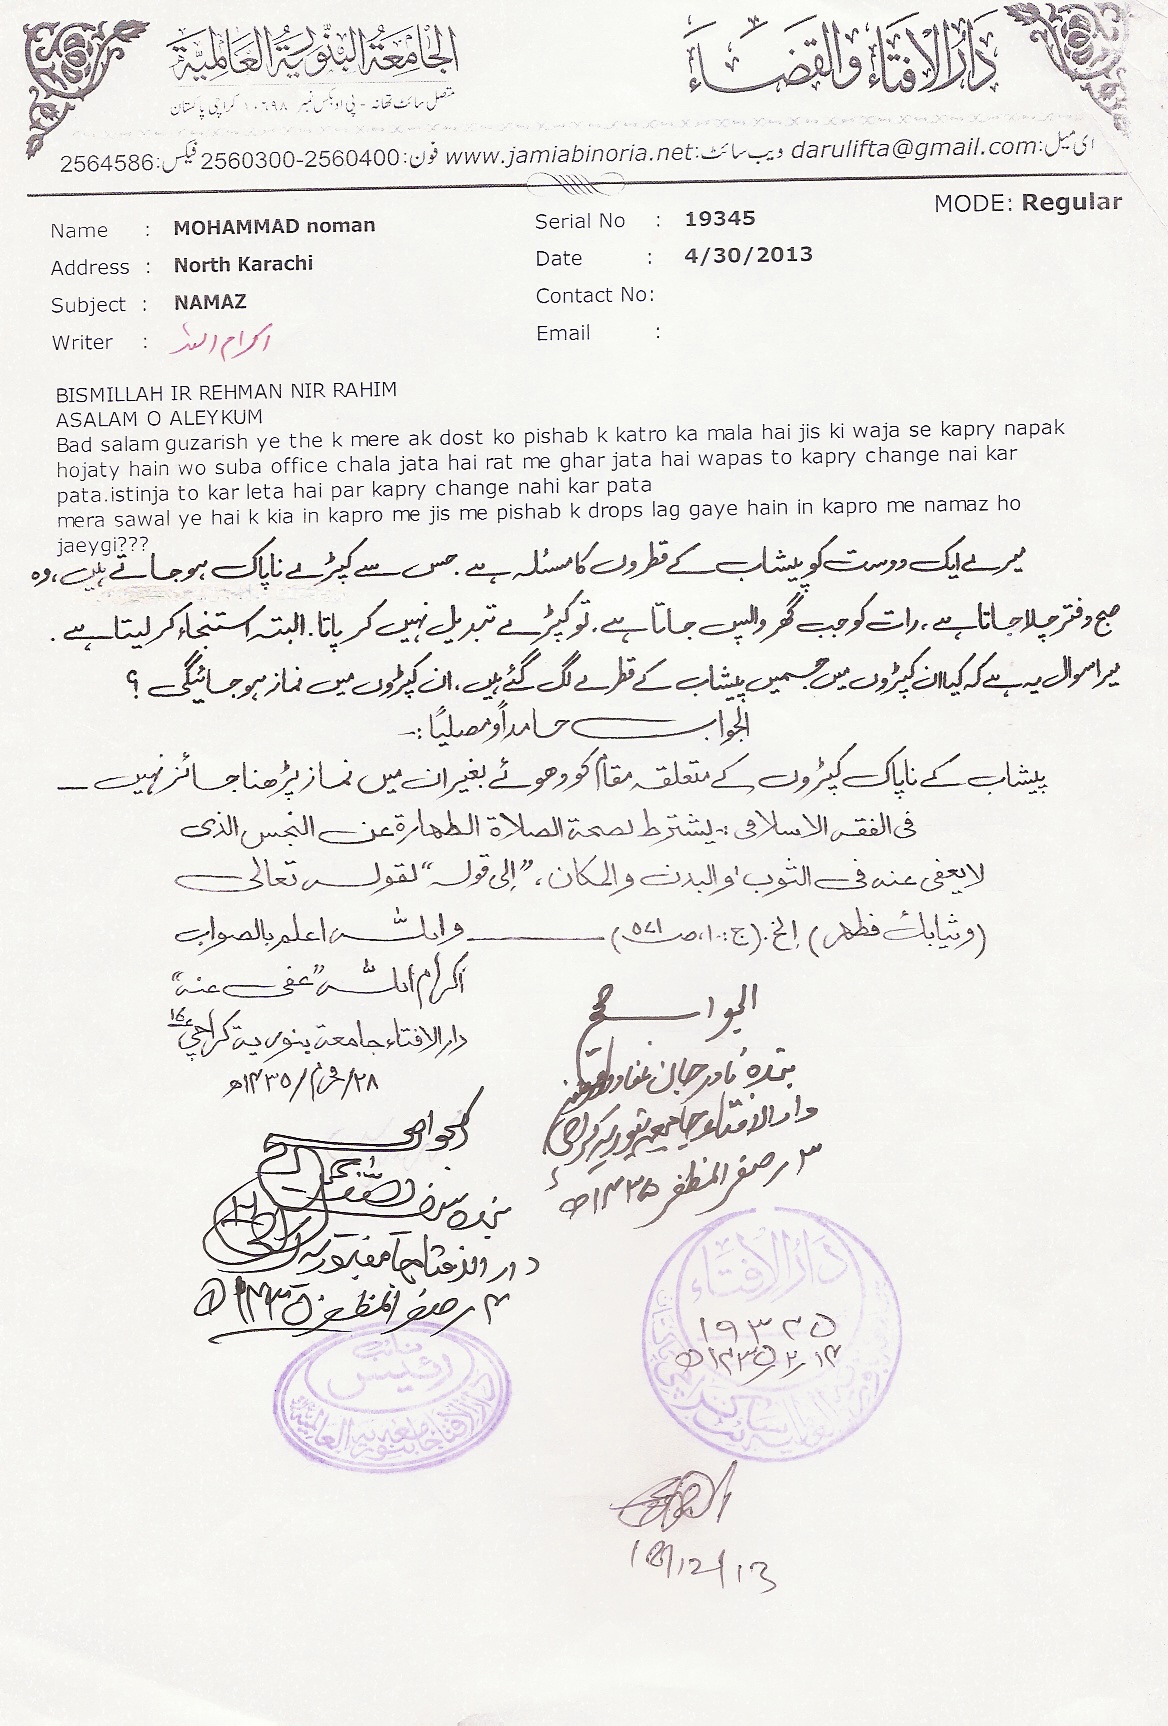 الجامعۃ البنوریۃ العالمیۃ
دار الافتاء والقضاء
متصل سائٹ تھانہ - پی او بکس نمبر ۱۰۶۹۸ کراچی پاکستان
ای میل:darulifta@gmail.com ویب سائٹ:www.jamiabinoria.net فون:2560300-2560400 فیکس:2564586
MODE: Regular
Name : MOHAMMAD noman
Serial No : 19345
Address : North Karachi
Date : 4/30/2013
Subject : NAMAZ
Contact No:
Writer : اکرام اللہ
Email :
BISMILLAH IR REHMAN NIR RAHIM
ASALAM O ALEYKUM
Bad salam guzarish ye the k mere ak dost ko pishab k katro ka mala hai jis ki waja se kapry napak
hojaty hain wo suba office chala jata hai rat me ghar jata hai wapas to kapry change nai kar
pata.istinja to kar leta hai par kapry change nahi kar pata
mera sawal ye hai k kia in kapro me jis me pishab k drops lag gaye hain in kapro me namaz ho
jaeygi???
میرے ایک دوست کو پیشاب کے قطروں کا مسئلہ ہے. جس سے کپڑے ناپاک ہوجاتے ہیں، وہ
صبح دفتر چلا جاتا ہے، رات کو جب گھر واپس جاتا ہے. تو کپڑے تبدیل نہیں کر پاتا. البتہ استنجاء کر لیتا ہے.
میرا سوال یہ ہے کہ کیا ان کپڑوں میں جسمیں پیشاب کے قطرے لگ گئے ہیں، ان کپڑوں میں نماز ہوجائیگی ؟
الجواب حامداً و مصلیًا:۔
پیشاب کے ناپاک کپڑوں کے متعلقہ مقام کو دھوئے بغیر ان میں نماز پڑھنا جائز نہیں ۔
فی الفقہ الاسلامی :۔ یشترط لصحۃ الصلاۃ الطہارۃ عن النجس الذی
لا یعفی عنہ فی الثوب والبدن والمکان، "إلی قولہ" لقولہ تعالی
(وثیابک فطہر) إلخ. (ج:۱، ص ۵۷۱) واللہ اعلم بالصواب
اکرام اللہ "عفی عنہ"
دار الافتاء جامعہ بنوریہ کراچی ۱۶
۲۸/محرم/۱۴۳۵ھ
الجواب صحیح
بندہ نادر جان
دار الافتاء جامعہ بنوریہ کراچی
۳ صفر المظفر ۱۴۳۵ھ
الجواب صحیح
بندہ
دار الافتاء جامعہ بنوریہ
۳ صفر المظفر ۱۴۳۵ھ
دار الافتاء
۱۹۳۴۵
نائب
رئیس
دار الافتاء جامعہ بنوریہ العالمیہ